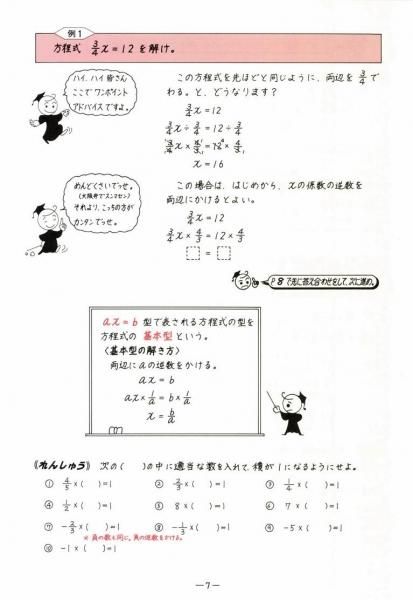 例1
方程式 3/4 x = 12 を解け。
ハイ、ハイ 皆さん
ここで ワンポイント
アドバイスですよ。
この方程式を先ほどと同じように、両辺を 3/4 で
わる。と、どうなります?
3/4 x = 12
3/4 x ÷ 3/4 = 12 ÷ 3/4
3/4 x × 4/3 = 12 × 4/3
x = 16
めんどくさいでっせ。
(大阪弁でスンマセン)
それより、こっちの方が
カンタンでっせ。
この場合は、はじめから、xの係数の逆数を
両辺にかけるとよい。
3/4 x = 12
3/4 x × 4/3 = 12 × 4/3
□ = □
P8で先に答え合わせをして、次に進め。
ax = b 型で表される方程式の型を
方程式の 基本型 という。
〈基本型の解き方〉
両辺にaの逆数をかける。
ax = b
ax × 1/a = b × 1/a
x = b/a
《れんしゅう》 次の( )の中に適当な数を入れて、積が1になるようにせよ。
① 4/5 ×( )=1 ② 2/3 ×( )=1 ③ 1/4 ×( )=1
④ 1/2 ×( )=1 ⑤ 8 ×( )=1 ⑥ 7 ×( )=1
⑦ -2/3 ×( )=1 ⑧ -1/3 ×( )=1 ⑨ -5 ×( )=1
※ 負の数も同じ。負の逆数をかける。
⑩ -1 ×( )=1
—7—